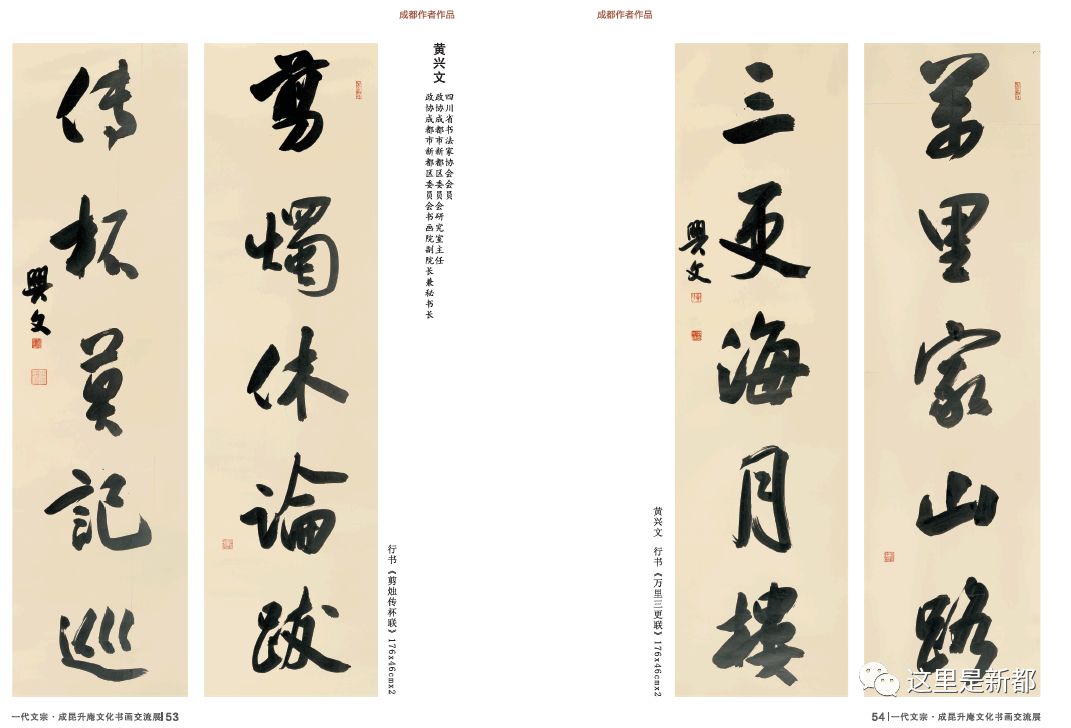 成都作者作品
成都作者作品
剪燭休論跋
傳杯莫記巡
興文
黄兴文
四川省书法家协会会员
政协成都市新都区委员会研究室主任
政协成都市新都区委员会书画院副院长兼秘书长
行书《剪烛传杯联》176x46cmx2
萬里家山路
三更海月樓
興文
黄兴文 行书《万里三更联》176x46cmx2
一代文宗·成昆升庵文化书画交流展 53
54 一代文宗·成昆升庵文化书画交流展
这里是新都